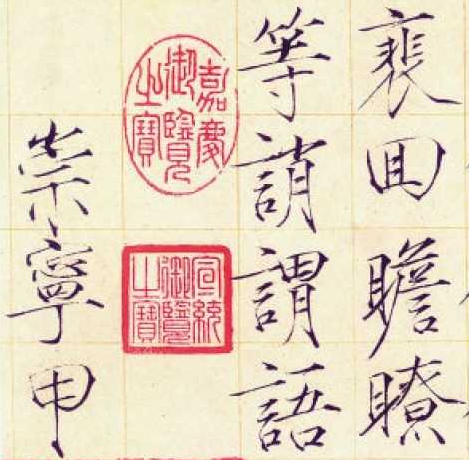 裵回瞻瞭
等誚謂語
嘉慶
御覽
之寶
宣統
御覽
之寶
崇寧甲